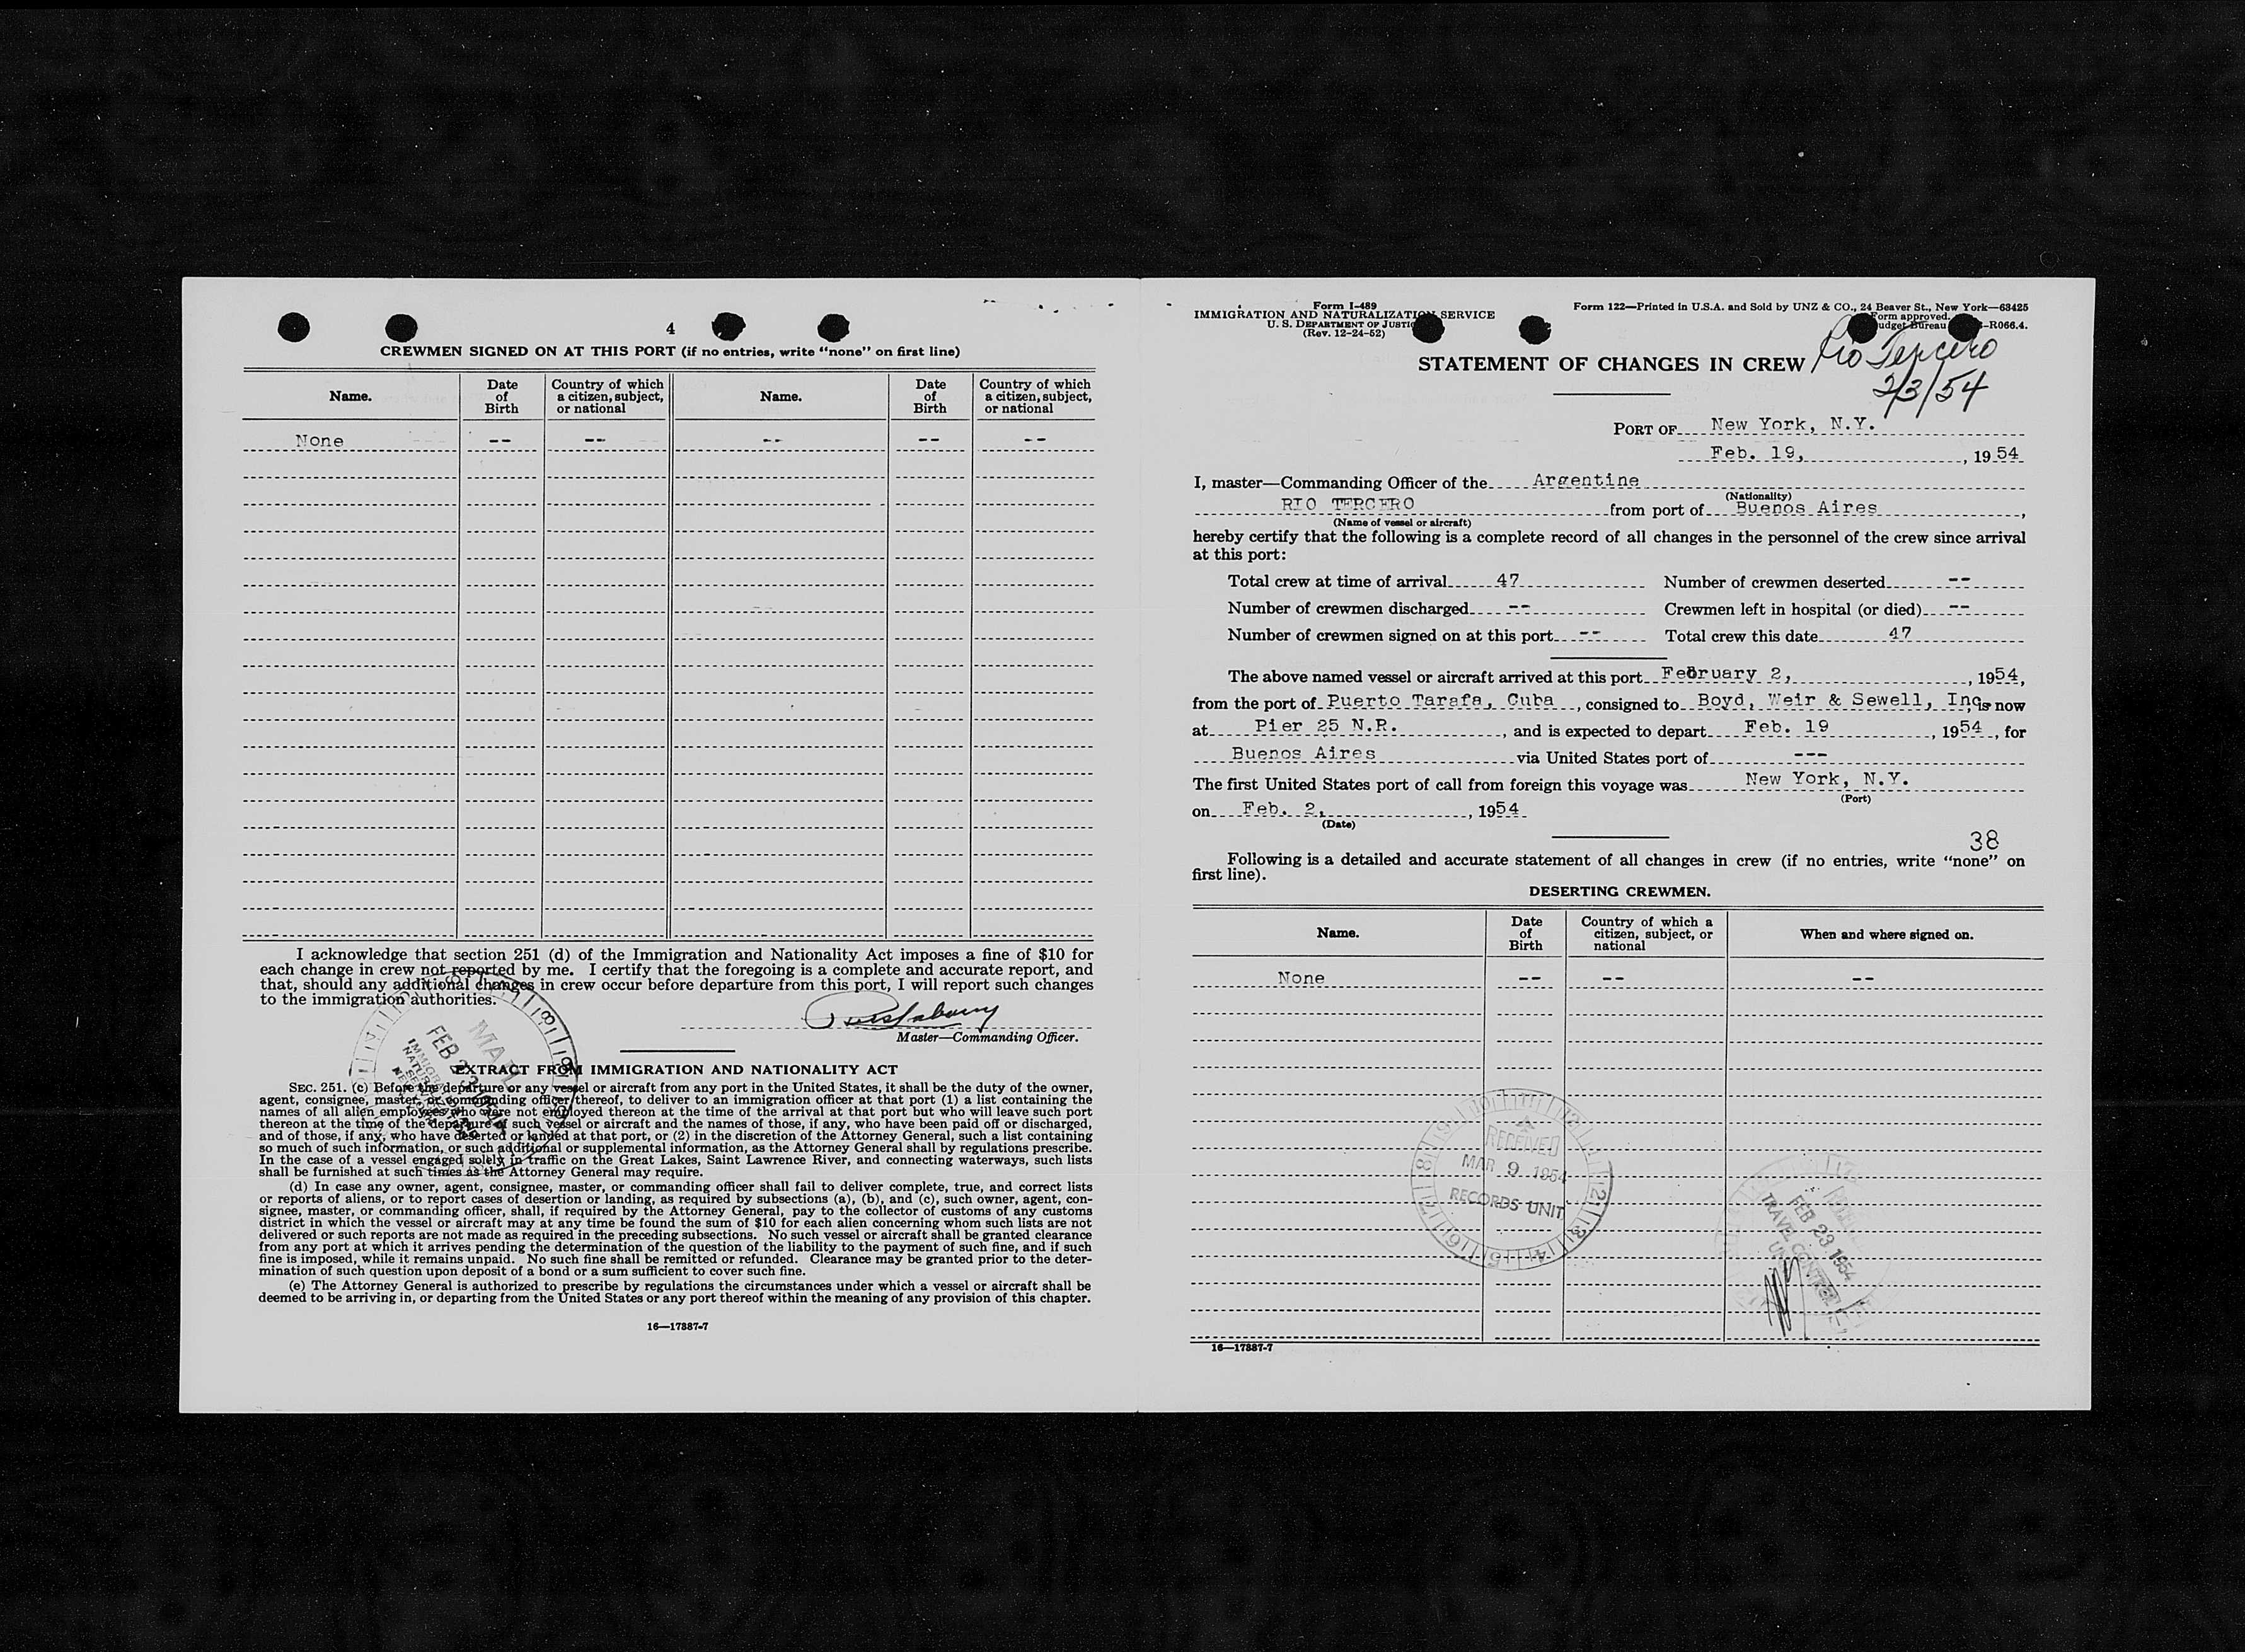 4
CREWMEN SIGNED ON AT THIS PORT (if no entries, write “none” on first line)
Name. Date of Birth Country of which a citizen, subject, or national Name. Date of Birth Country of which a citizen, subject, or national
None -- -- -- -- --
I acknowledge that section 251 (d) of the Immigration and Nationality Act imposes a fine of $10 for
each change in crew not reported by me. I certify that the foregoing is a complete and accurate report, and
that, should any additional changes in crew occur before departure from this port, I will report such changes
to the immigration authorities.
Master—Commanding Officer.
MAIL
FEB 23 1954
EXTRACT FROM IMMIGRATION AND NATIONALITY ACT
SEC. 251. (c) Before the departure or any vessel or aircraft from any port in the United States, it shall be the duty of the owner,
agent, consignee, master, or commanding officer thereof, to deliver to an immigration officer at that port (1) a list containing the
names of all alien employees who were not employed thereon at the time of the arrival at that port but who will leave such port
thereon at the time of the departure of such vessel or aircraft and the names of those, if any, who have been paid off or discharged,
and of those, if any, who have deserted or landed at that port, or (2) in the discretion of the Attorney General, such a list containing
so much of such information, or such additional or supplemental information, as the Attorney General shall by regulations prescribe.
In the case of a vessel engaged solely in traffic on the Great Lakes, Saint Lawrence River, and connecting waterways, such lists
shall be furnished at such times as the Attorney General may require.
(d) In case any owner, agent, consignee, master, or commanding officer shall fail to deliver complete, true, and correct lists
or reports of aliens, or to report cases of desertion or landing, as required by subsections (a), (b), and (c), such owner, agent, con-
signee, master, or commanding officer, shall, if required by the Attorney General, pay to the collector of customs of any customs
district in which the vessel or aircraft may at any time be found the sum of $10 for each alien concerning whom such lists are not
delivered or such reports are not made as required in the preceding subsections. No such vessel or aircraft shall be granted clearance
from any port at which it arrives pending the determination of the question of the liability to the payment of such fine, and if such
fine is imposed, while it remains unpaid. No such fine shall be remitted or refunded. Clearance may be granted prior to the deter-
mination of such question upon deposit of a bond or a sum sufficient to cover such fine.
(e) The Attorney General is authorized to prescribe by regulations the circumstances under which a vessel or aircraft shall be
deemed to be arriving in, or departing from the United States or any port thereof within the meaning of any provision of this chapter.
16—17887-7
Form I-489
IMMIGRATION AND NATURALIZATION SERVICE
U. S. DEPARTMENT OF JUSTICE
(Rev. 12-24-52)
Form 122—Printed in U.S.A. and Sold by UNZ & CO., 24 Beaver St., New York—63425
Form approved.
Budget Bureau -R066.4.
STATEMENT OF CHANGES IN CREW
Rio Tercero
2/3/54
PORT OF New York, N.Y.
Feb. 19, , 1954
I, master—Commanding Officer of the Argentine
(Nationality)
RIO TERCERO from port of Buenos Aires ,
(Name of vessel or aircraft)
hereby certify that the following is a complete record of all changes in the personnel of the crew since arrival
at this port:
Total crew at time of arrival 47 Number of crewmen deserted --
Number of crewmen discharged -- Crewmen left in hospital (or died) --
Number of crewmen signed on at this port -- Total crew this date 47
The above named vessel or aircraft arrived at this port February 2, , 1954,
from the port of Puerto Tarafa, Cuba , consigned to Boyd, Weir & Sewell, Inc, is now
at Pier 25 N.R. , and is expected to depart Feb. 19 , 1954 , for
Buenos Aires via United States port of ---
The first United States port of call from foreign this voyage was New York, N.Y.
(Port)
on Feb. 2, , 1954
(Date)
38
Following is a detailed and accurate statement of all changes in crew (if no entries, write “none” on
first line).
DESERTING CREWMEN.
Name. Date of Birth Country of which a citizen, subject, or national When and where signed on.
None -- -- --
RECEIVED
MAR 9 1954
RECORDS UNIT
FEB 23 1954
TRAVEL CONTROL
16—17887-7